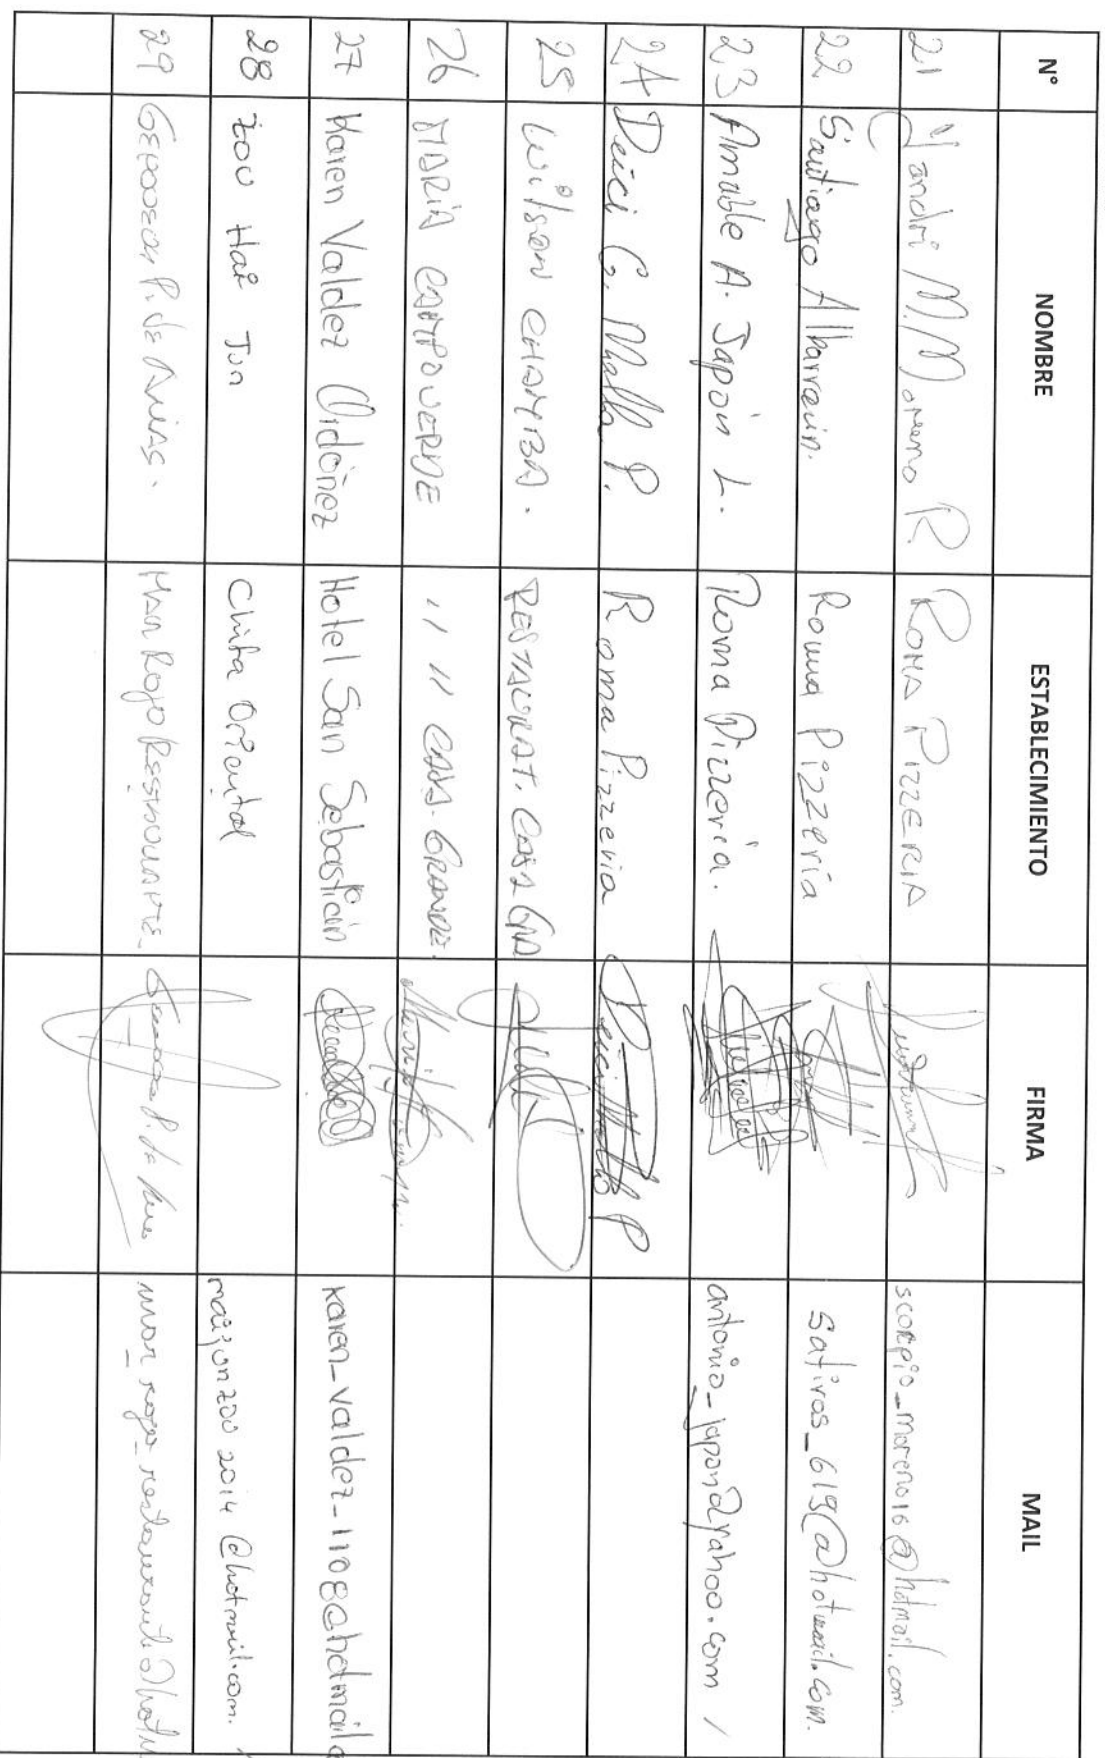 N° NOMBRE ESTABLECIMIENTO FIRMA MAIL
21 Yandri M. Moreno R ROMA PIZZERIA scorpio_moreno16@hotmail.com.
22 Santiago Albarracin. Roma Pizzería Satiros_619@hotmail.com.
23 Amable A. Japón L. Roma Pizzeria. antonio_japon@yahoo.com /
24 Deici G. Malla P. Roma Pizzeria
25 Wilson CHAMBA. RESTAURAT. CASA GRA
26 MARIA CAMPOVERDE 11 11 CASA-GRANDE.
27 Karen Valdez Ordóñez Hotel San Sebastián karen_valdez_1108@hotmail.c
28 Zou Hai Jun Chifa Oriental maijunzou2014@hotmail.com.
29 P. de Arias. MAR ROJO RESTAURANTE_ mar_rojo_restaurante@hotm